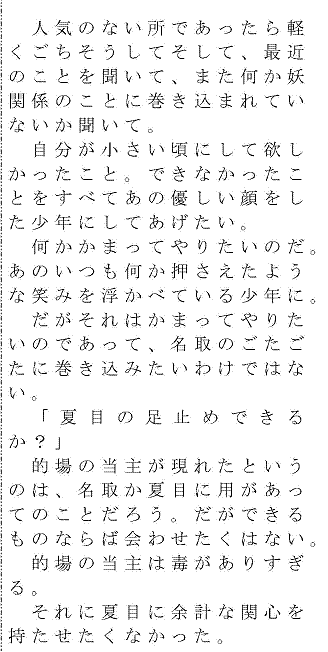 人気のない所であったら軽
くごちそうしてそして、最近
のことを聞いて、また何か妖
関係のことに巻き込まれてい
ないか聞いて。
　自分が小さい頃にして欲し
かったこと。できなかったこ
とをすべてあの優しい顔をし
た少年にしてあげたい。
　何かかまってやりたいのだ。
あのいつも何か押さえたよう
な笑みを浮かべている少年に。
　だがそれはかまってやりた
いのであって、名取のごたご
たに巻き込みたいわけではな
い。
　「夏目の足止めできる
か？」
　的場の当主が現れたという
のは、名取か夏目に用があっ
てのことだろう。だができる
ものならば会わせたくはない。
　的場の当主は毒がありすぎ
る。
　それに夏目に余計な関心を
持たせたくなかった。